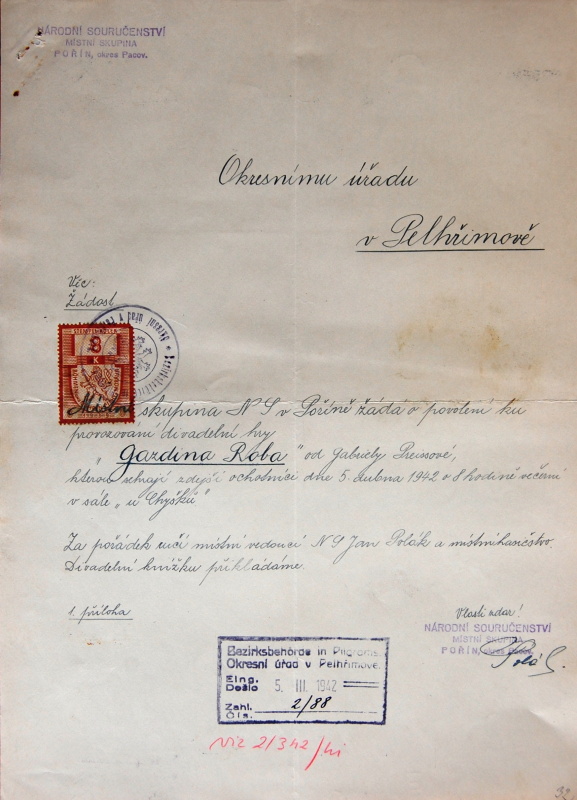 NÁRODNÍ SOURUČENSTVÍ
MÍSTNÍ SKUPINA
POŘÍN, okres Pacov.
Okresnímu úřadu
v Pelhřimově
Věc:
Žádost
8
K
Místní skupina N S v Poříně žádá o povolení ku
provozování divadelní hry
„Gazdina Roba" od Gabriely Preisové,
kterou sehrají zdejší ochotníci dne 5. dubna 1942 o 8 hodině večerní
v sále „u Chyšků"
Za pořádek ručí místní vedoucí N S Jan Polák a místní hasičstvo.
Divadelní knížku přikládáme.
1 příloha
Vlasti zdar!
NÁRODNÍ SOURUČENSTVÍ
MÍSTNÍ SKUPINA
POŘÍN, okres Pacov.
Polák
Bezirksbehörde in Pilgrams
Okresní úřad v Pelhřimově.
Eing.
Došlo 5. III. 1942
Zahl.
Čís. 2/88
viz 2/342/
32